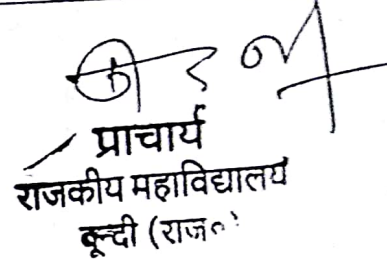 प्राचार्य
राजकीय महाविद्यालय
बून्दी (राज०)